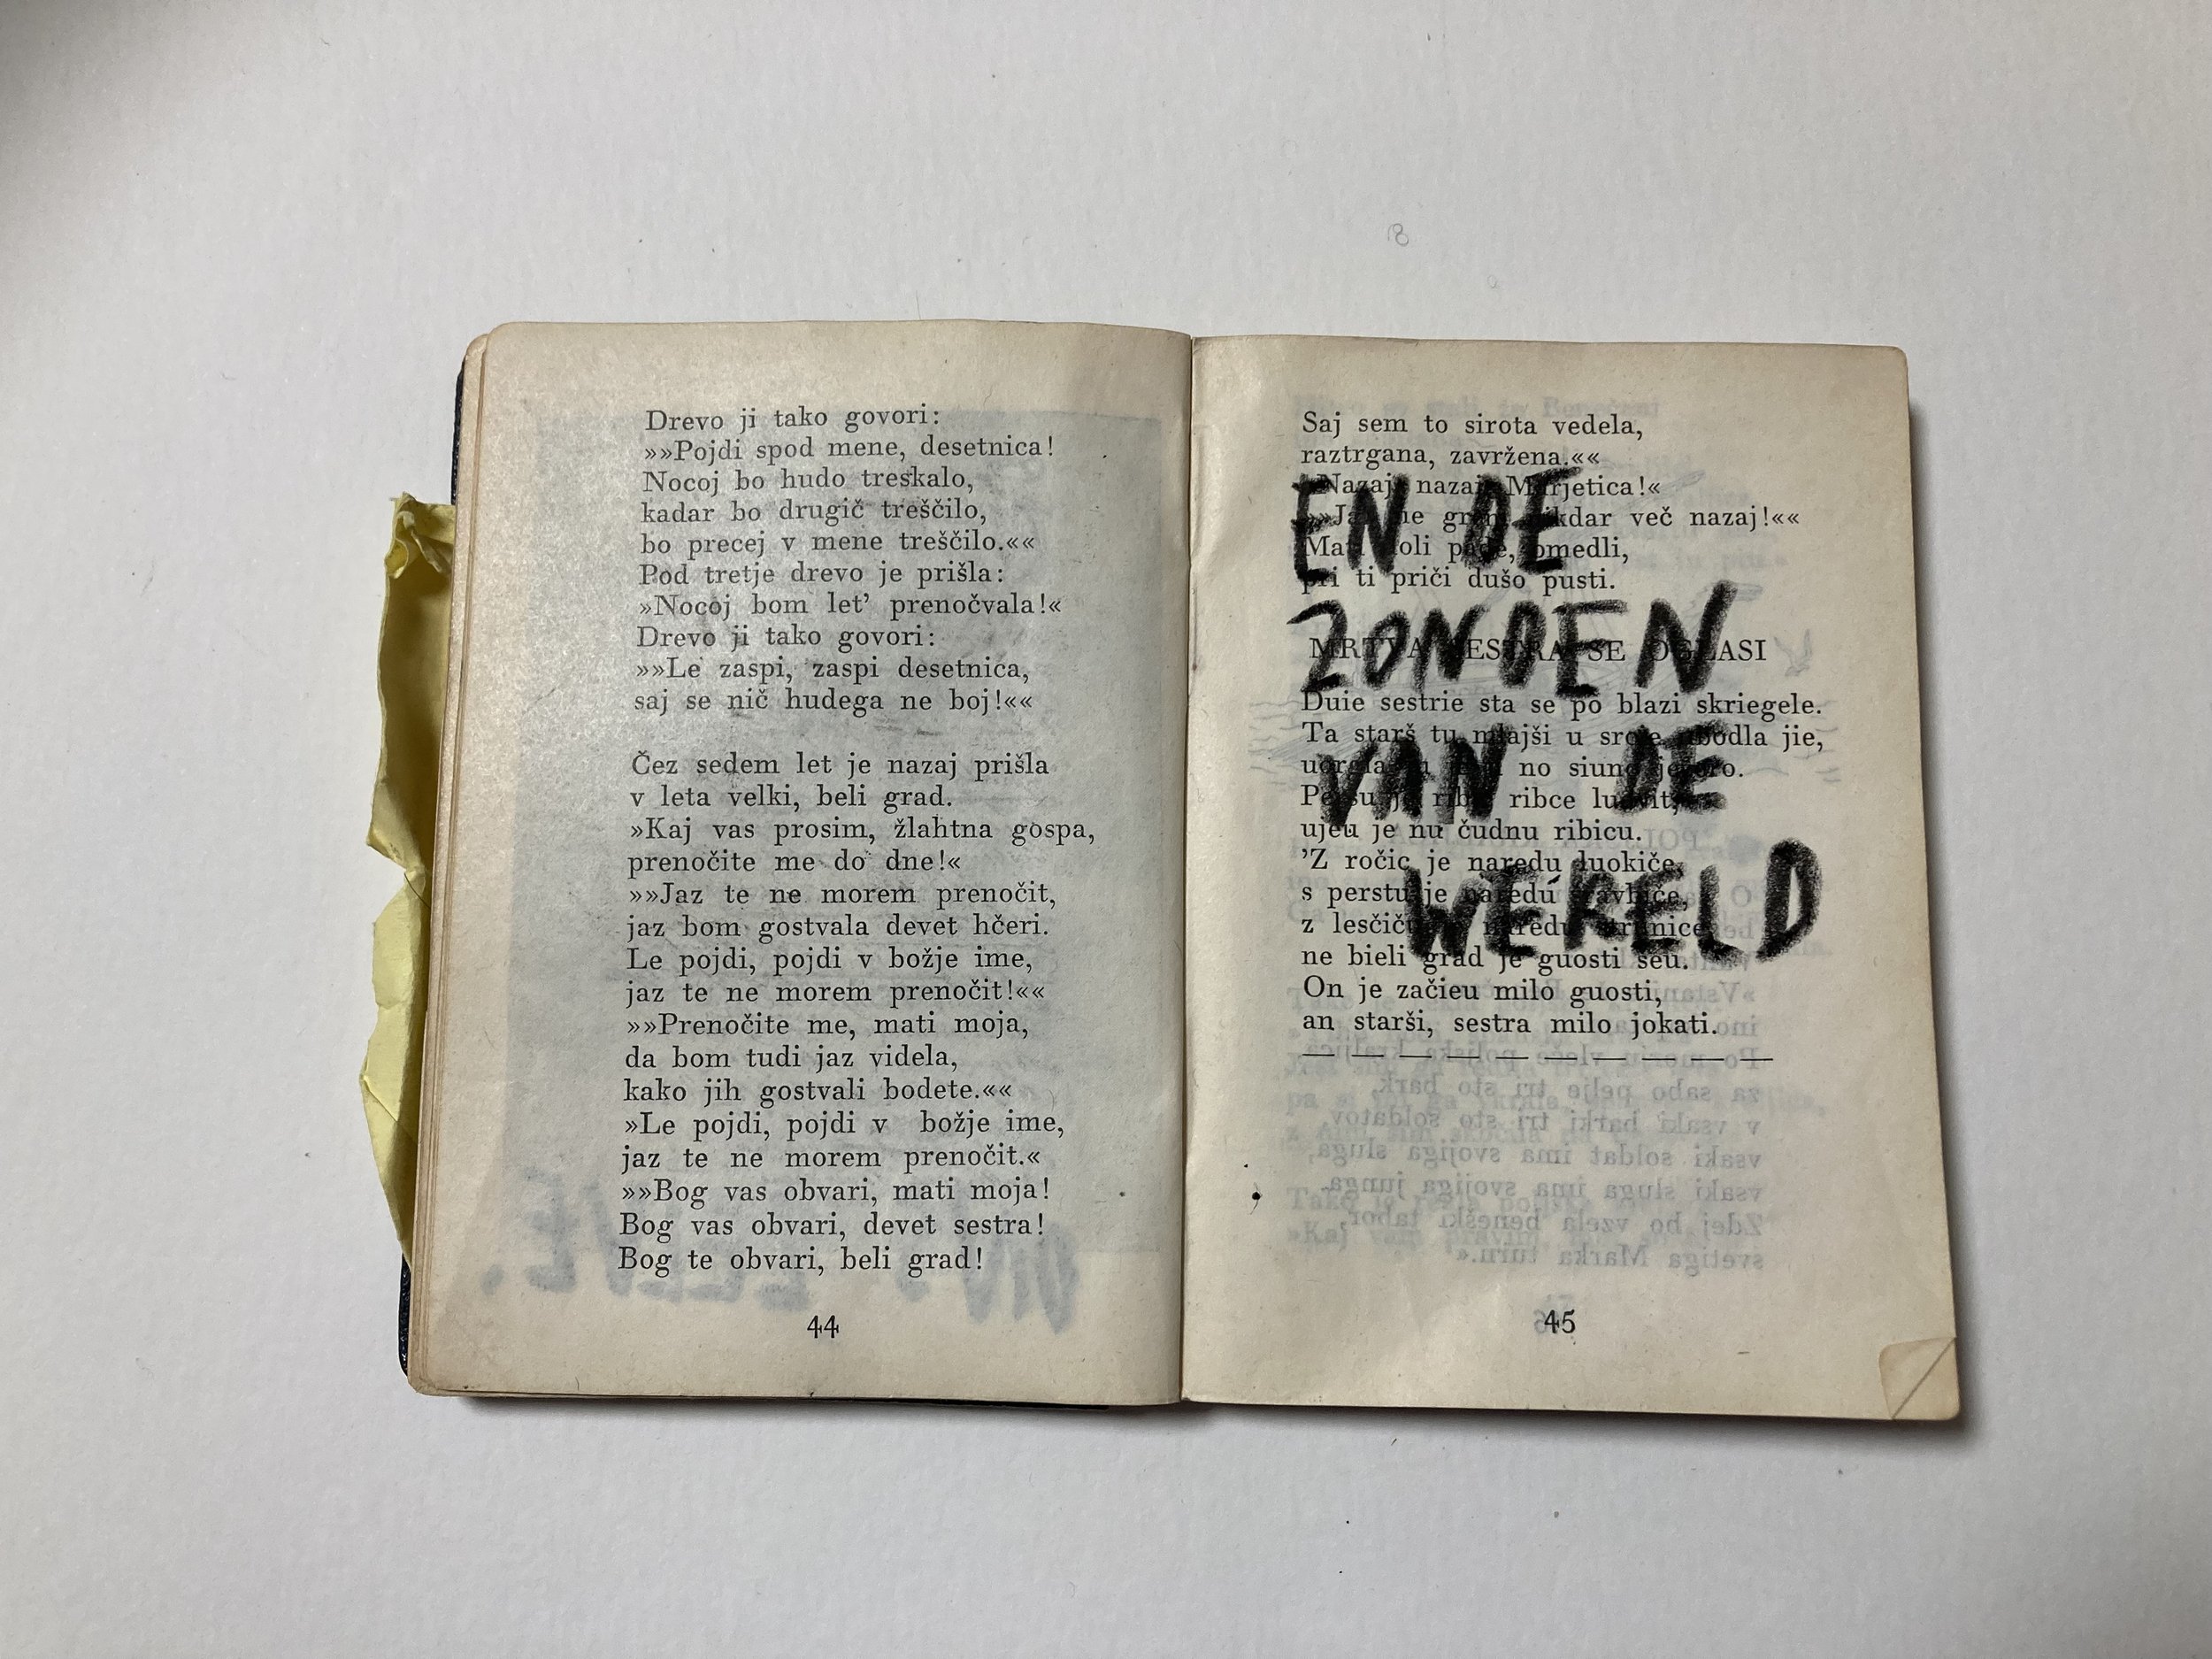 Drevo ji tako govori:
»»Pojdi spod mene, desetnica!
Nocoj bo hudo treskalo,
kadar bo drugič treščilo,
bo precej v mene treščilo.««
Pod tretje drevo je prišla:
»Nocoj bom let' prenočvala!«
Drevo ji tako govori:
»»Le zaspi, zaspi desetnica,
saj se nič hudega ne boj!««
Čez sedem let je nazaj prišla
v leta velki, beli grad.
»Kaj vas prosim, žlahtna gospa,
prenočite me do dne!«
»»Jaz te ne morem prenočit,
jaz bom gostvala devet hčeri.
Le pojdi, pojdi v božje ime,
jaz te ne morem prenočit!««
»»Prenočite me, mati moja,
da bom tudi jaz videla,
kako jih gostvali bodete.««
»Le pojdi, pojdi v božje ime,
jaz te ne morem prenočit.«
»»Bog vas obvari, mati moja!
Bog vas obvari, devet sestra!
Bog te obvari, beli grad!
44
Saj sem to sirota vedela,
raztrgana, zavržena.««
»Nazaj, nazaj, Marjetica!«
več nazaj!««
omedli,
pri ti priči dušo pusti.
MRTVA SESTRA SE OGLASI
Duie sestrie sta se po blazi skriegele.
Ta starš tu mlajši u srce ubodla jie,
no siuno
ribce
ujeu je nu čudnu ribicu.
'Z ročic je naredu luokiče,
s perstu je naredu
z naredu
ne bieli grad je guosti šeu.
On je začieu milo guosti,
an starši, sestra milo jokati.
45
EN DE
ZONDEN
VAN DE
WERELD